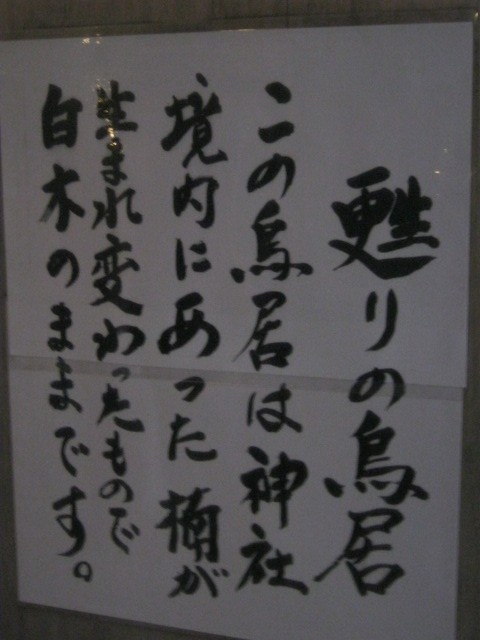 甦りの鳥居
この鳥居は神社
境内にあった楠が
生まれ変わったもので
白木のままです。